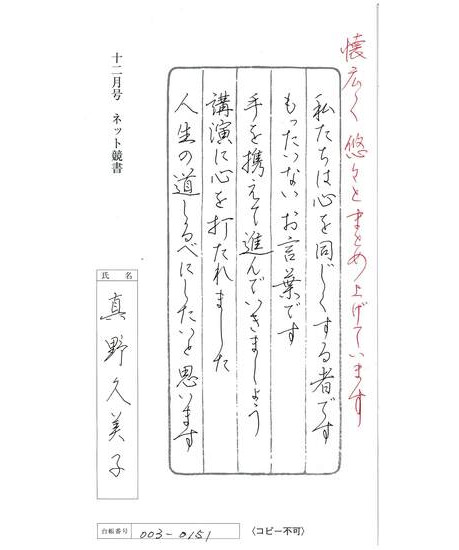 懐広く悠々とまとめ上げています
私たちは心を同じくする者です
もったいないお言葉です
手を携えて進んでいきましょう
講演に心を打たれました
人生の道しるべにしたいと思います
十二月号 ネット競書
氏名
真野久美子
台帳番号 003-0151
〈コピー不可〉